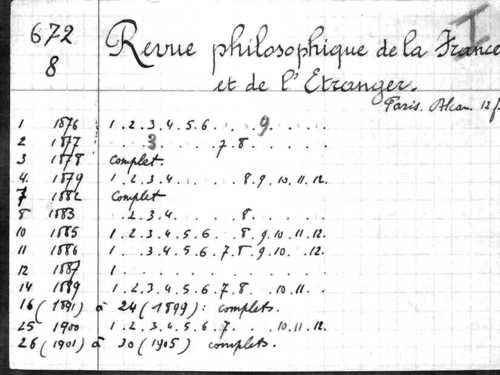 672
8
I
Revue philosophique de la France
et de l'Etranger.
Paris. Alcan. 12/
1 1876 1 . 2 . 3 . 4 . 5 . 6 . . . 9 . . . .
2 1877 . . 3 . . . 7 . 8 . . . .
3 1878 Complet.
4. 1879 1 . 2 . 3 . 4 . . . . 8 . 9 . 10 . 11 . 12 .
7 1882 Complet
8 1883 . 2 . 3 . 4 . . . . 8 . . . .
10 1885 1 . 2 . 3 . 4 . 5 . 6 . . 8 . 9 . 10 . 11 . 12 .
11 1886 1 . . 3 . 4 . 5 . 6 . 7 . 8 . 9 . 10 . . 12 .
12 1887 1 . . . . . . . . . . .
14 1889 1 . 2 . 3 . 4 . 5 . 6 . 7 . 8 . . 10 . 11 . .
16 (1891) à 24 (1899) : complets.
25 1900 1 . 2 . 3 . 4 . 5 . 6 . 7 . . . 10 . 11 . 12 .
26 (1901) à 30 (1905) complets.